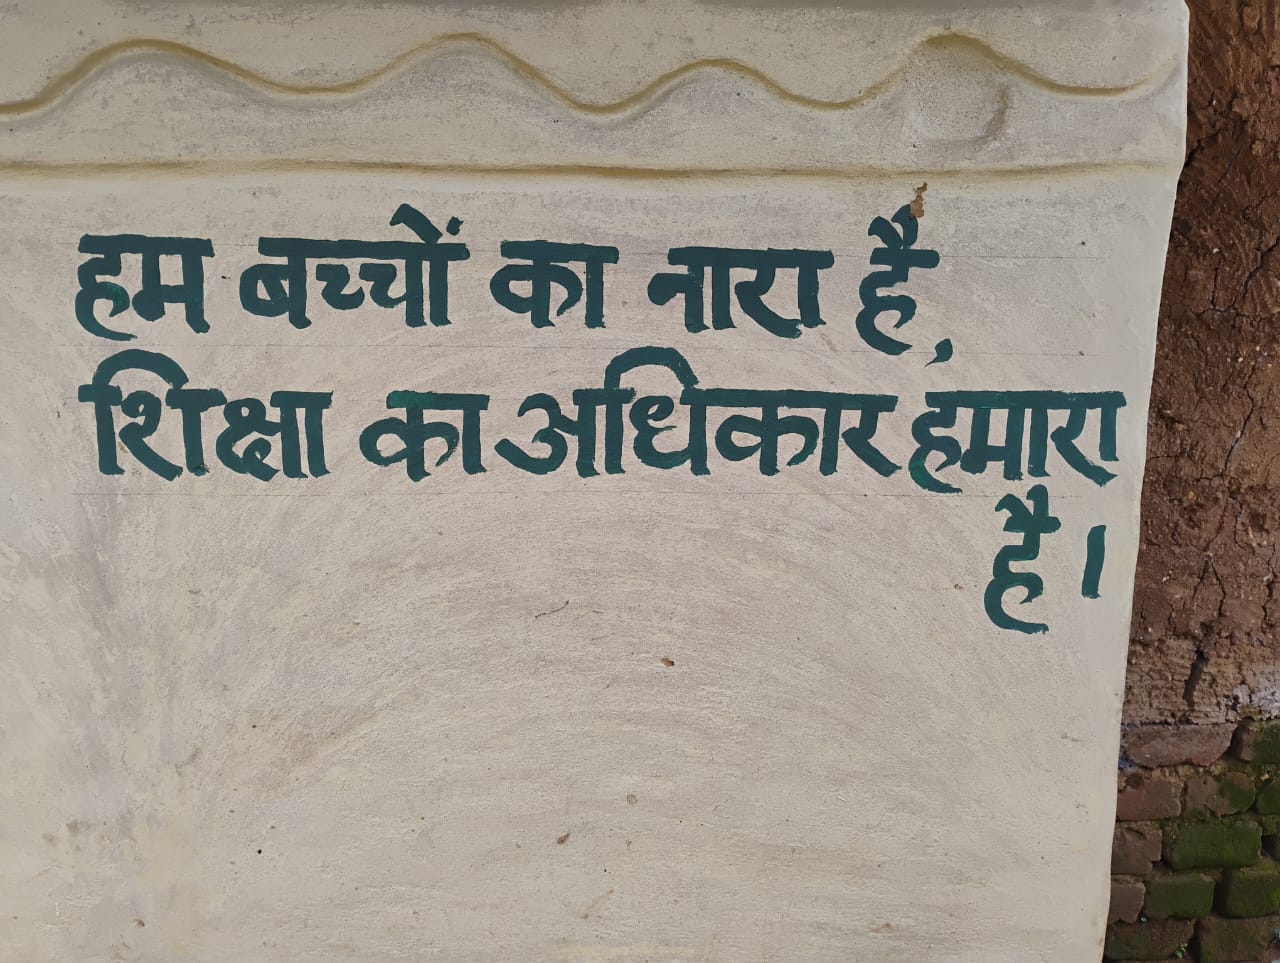 हम बच्चों का नारा है,
शिक्षा का अधिकार हमारा
है।